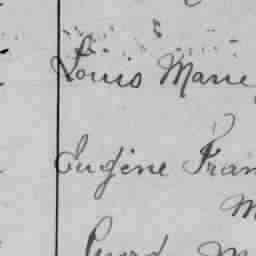 Louis Marie
Eugène Fran
M